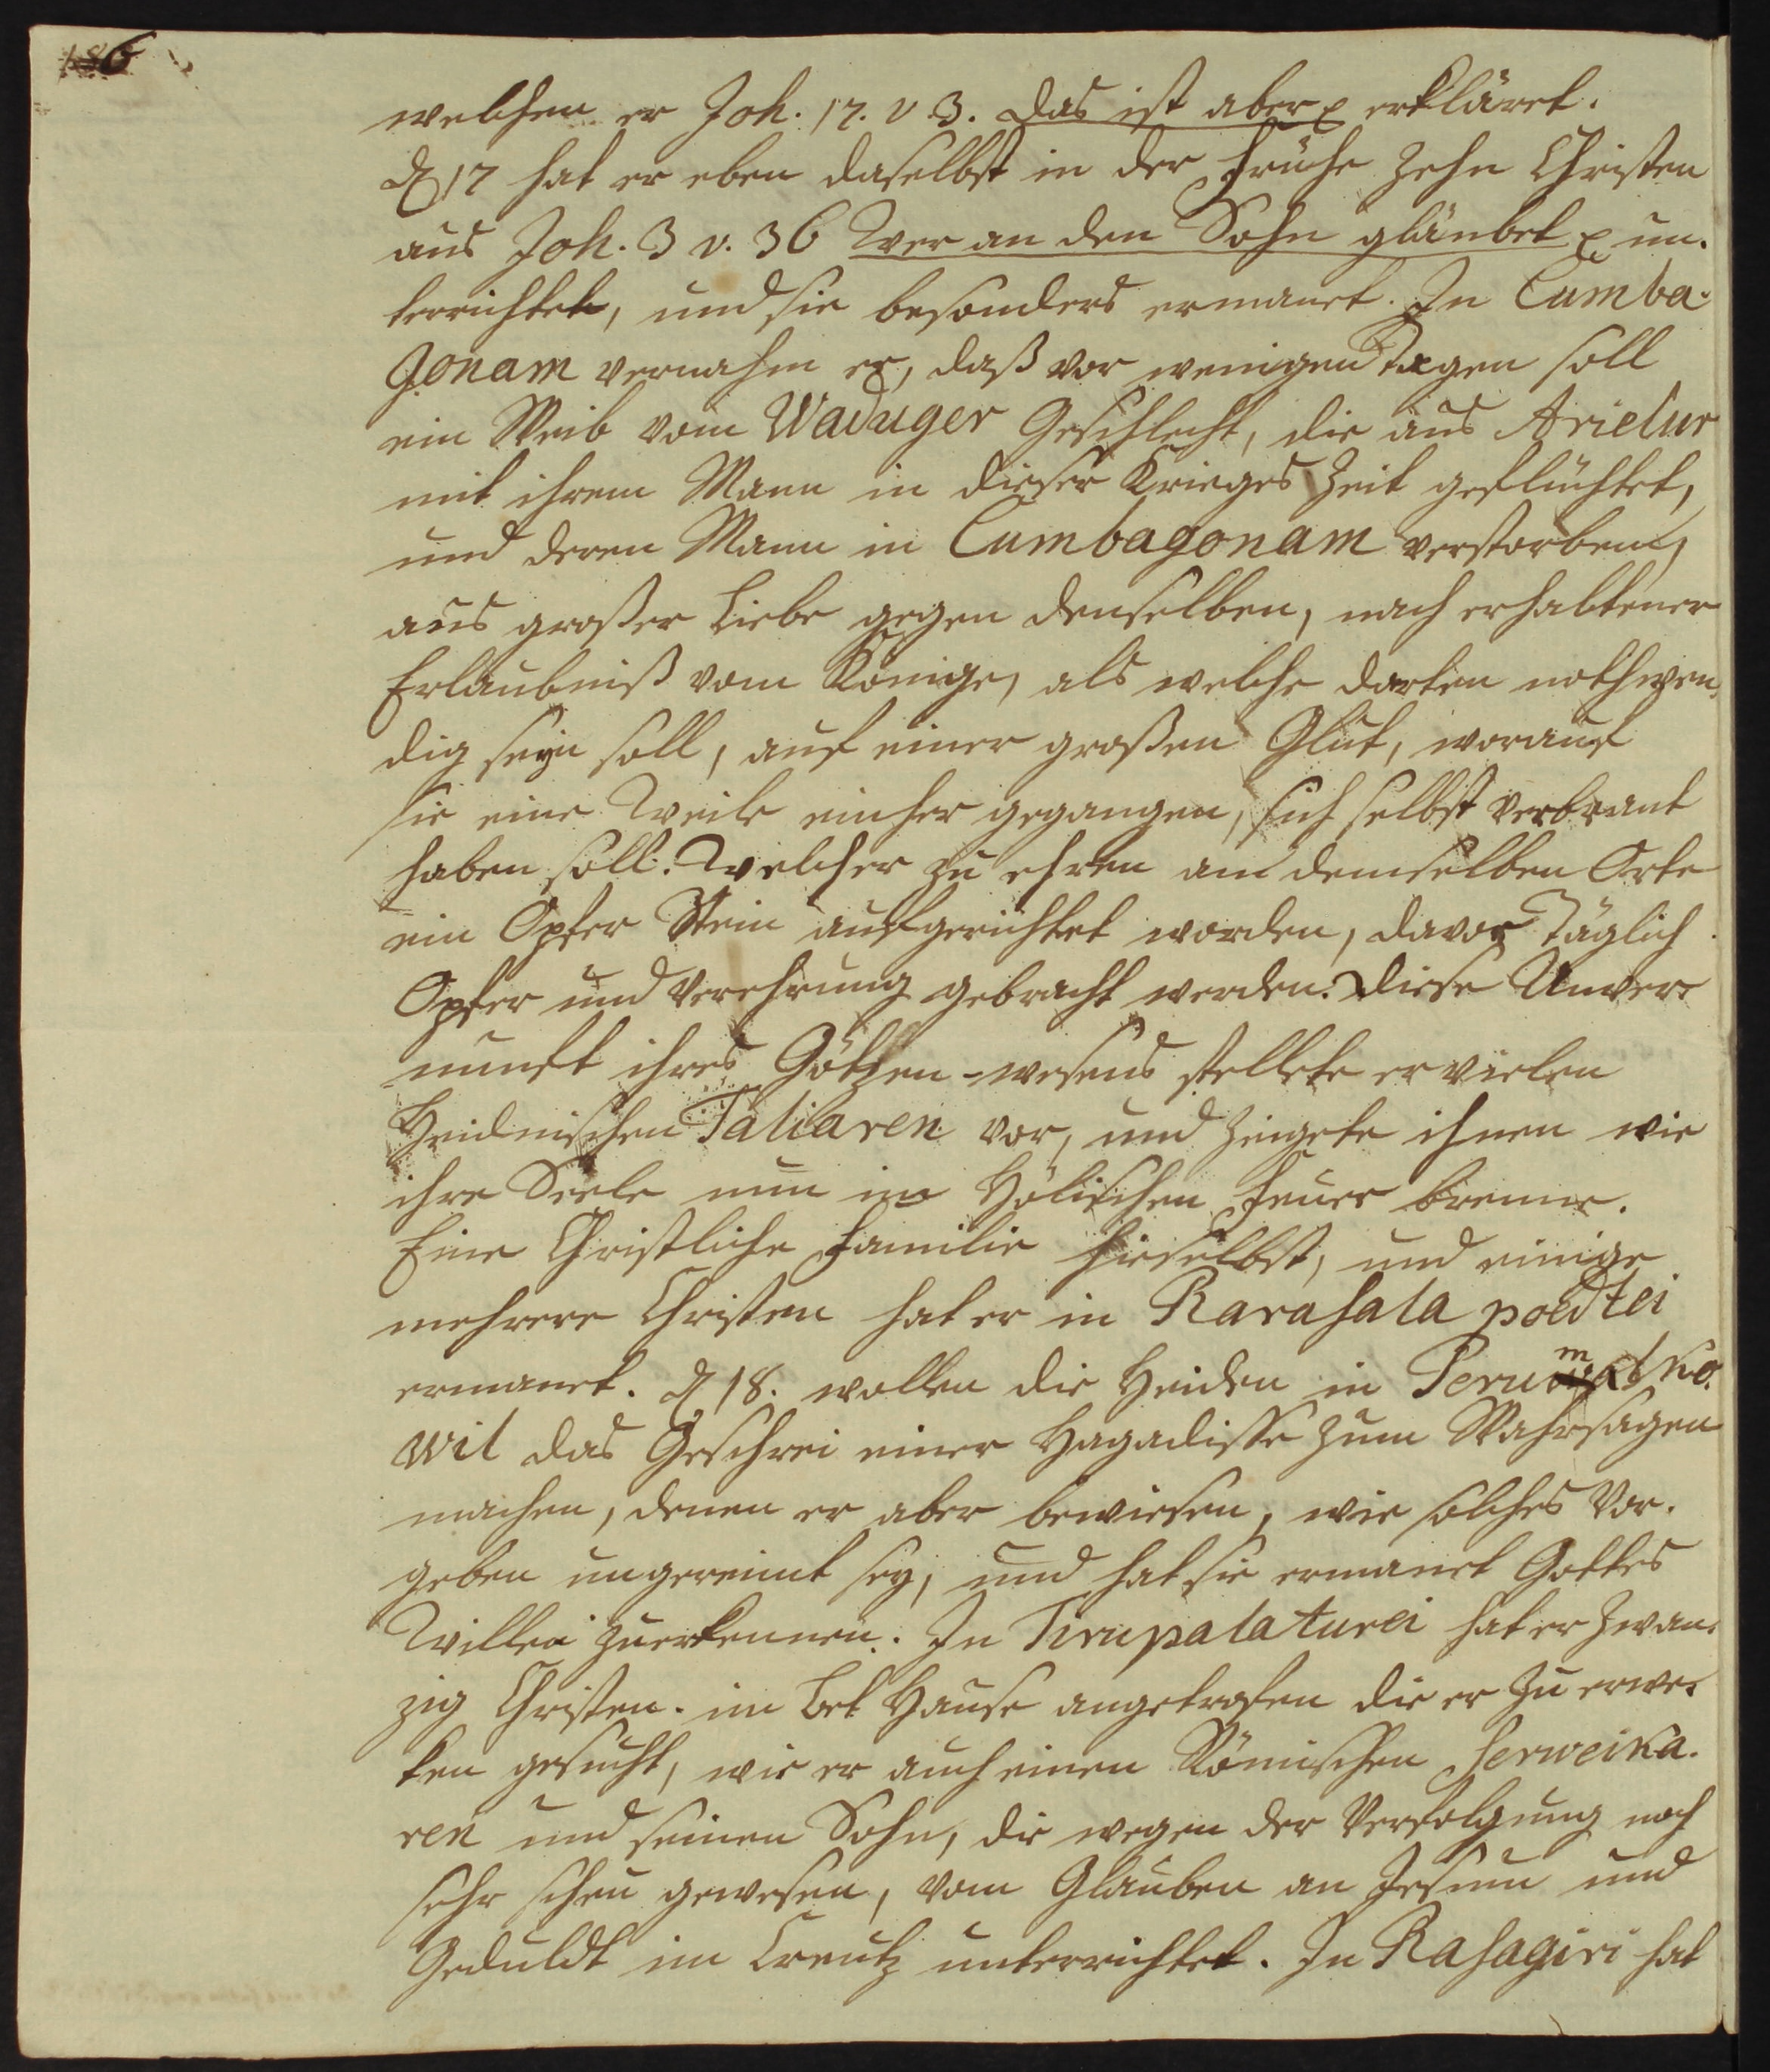 186
welchen er Joh. 17. v 3. das ist aber ꝛc erkläret.
d 17 hat er eben daselbst in der Frühe zehn Christen
aus Joh. 3 v. 36 Wer an den Sohn gläubet ꝛc un-
terrichtet, und sie besonders ermanet. In Cumba-
gonam vernahm er, daß vor wenigen Tagen soll
ein Weib vom Waduger Geschlecht, die aus Arielur
mit ihrem Mann in dieser Krieges Zeit geflüchtet,
und deren Mann in Cumbagonam verstorben,
aus großer Liebe gegen denselben, nach erhaltener
Erlaubniß vom Könige, als welche darten nothwen-
dig seyn soll, auf einer großen Glut, worauf
sie eine Weile einher gegangen, sich selbst verbrant
haben soll. Welcher zu ehren an demselben Orte
ein Opfer Stein aufgerichtet worden, davor täglich
Opfer und Verehrung gebracht werden. Diese Unver-
nunft ihres Götzen-wesens stellete er vielen
Heidnischen Taliaren vor, und zeigete ihnen wie
ihre Seele nun im Hölischen Feuer brenne.
Eine Christliche Familie hieselbst, und einige
mehrere Christen hat er in Rarasala poedtei
ermanet. d 18. wollen die Heiden in Perumalko-
wil das Geschrei einer Hagadisse zum Wahrsagen
machen, denen er aber bewiesen, wie solches Vor-
geben ungereimt sey, und hat sie ermanet Gottes
Willen zuerkennen. In Tirupalaturei hat er zwan-
zig Christen im Bet Hause angetrofen die er zu erwe-
ken gesucht, wie er auch einen Römischen Serweika-
ren und seinen Sohn, die wegen der Verfolgung noch
sehr scheu gewesen, vom Glauben an Jesum und
Geduldt im Creutz unterrichtet. In Rasagiri hat